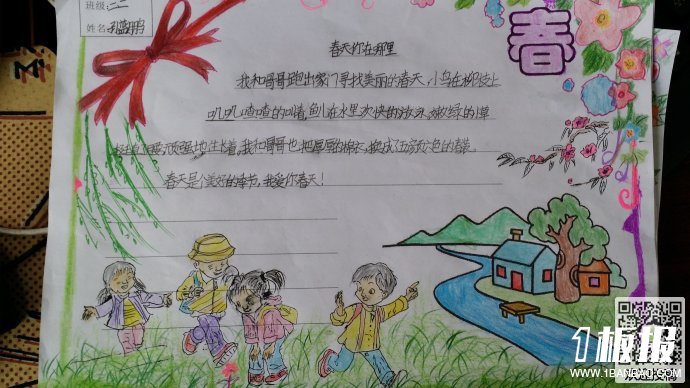 班级:二二
姓名:
春
春天你在那里
我和哥哥跑出家门寻找美丽的春天,小鸟在柳枝上
叽叽喳喳的叫着,鱼儿在水里欢快的游来,嫩绿的草
地生着,我和哥哥也把厚厚的棉衣,换成五颜六色的春装。
春天是个美好的季节,我爱你春天!
1板报
WWW.1BANBAO.COM